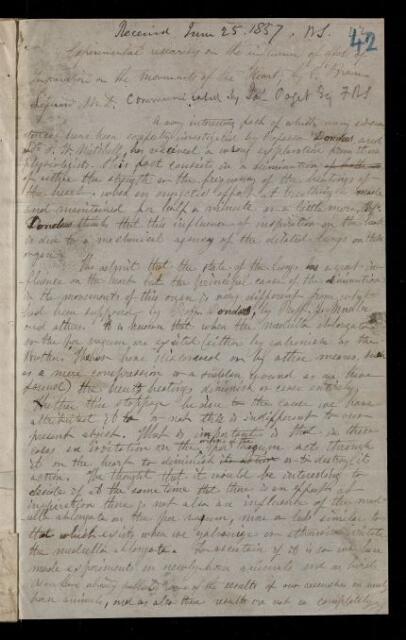 Received June 25. 1857. WS.
42
Experimental researches on the influence of efforts of
Inspiration on the Movements of the Heart, by E. Brown-
Séquard M.D. Communicated by Jas. Paget Esq FRS
A very interesting fact of which many
have been carefully investigated by Professor Donders, and
Dr. S. W. Mitchell, has received a wrong explanation from these
Physiologists. This fact consists in a diminution
of either the strength or the frequency of the beatings of
the heart, when an energetic effort at breathing is made
and maintained for half a minute or a little more.
Donders thinks that this influence of inspiration on the heart
is due to a mechanical agency of the dilated lungs on that
organ.
We admit that the state of the lungs has a great in-
fluence on the heart but the principal cause of the diminution
in the movements of this organ is very different from what
had been supposed by Donders, by Prof. J. Muller
and others. It is known that when the medulla oblongata
or the par vagum are excited (either by galvanism as the
Brothers Weber have discovered or by other means, such
as a mere compression or a sudden wound as we have
found) the heart's beatings diminish or cease entirely.
Whether this stoppage be due to the cause we have
attributed it to or not this is indifferent to our
present object. What is important is that in these
cases an irritation on the par vagum acts through
it on the heart to diminish its action or to destroy its
action. We thought that it would be interesting to
decide if at the same time that there is an effort at
inspiration there is not also an influence of the med-
ulla oblongata on the par vagum, more or less similar to
that which exists when we galvanize or otherwise irritate
the medulla oblongata. To ascertain if it is so we have
made experiments on newly born animals and on birds
the results of our researches on
animals, and as also these results are not so completely